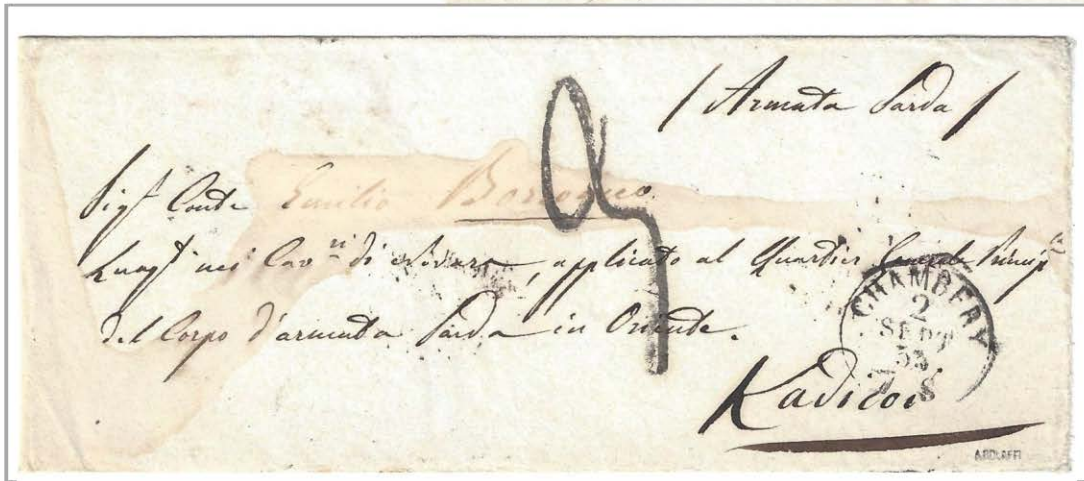 / Armata Sarda /
Sig.r Conte Emilio Borromeo
Luog.t nei Cav.ri di Novara, applicato al Quartier Generale Princip.le
del Corpo d'armata Sarda in Oriente.
Kadicoi
CHAMBERY
2
SEPT
55